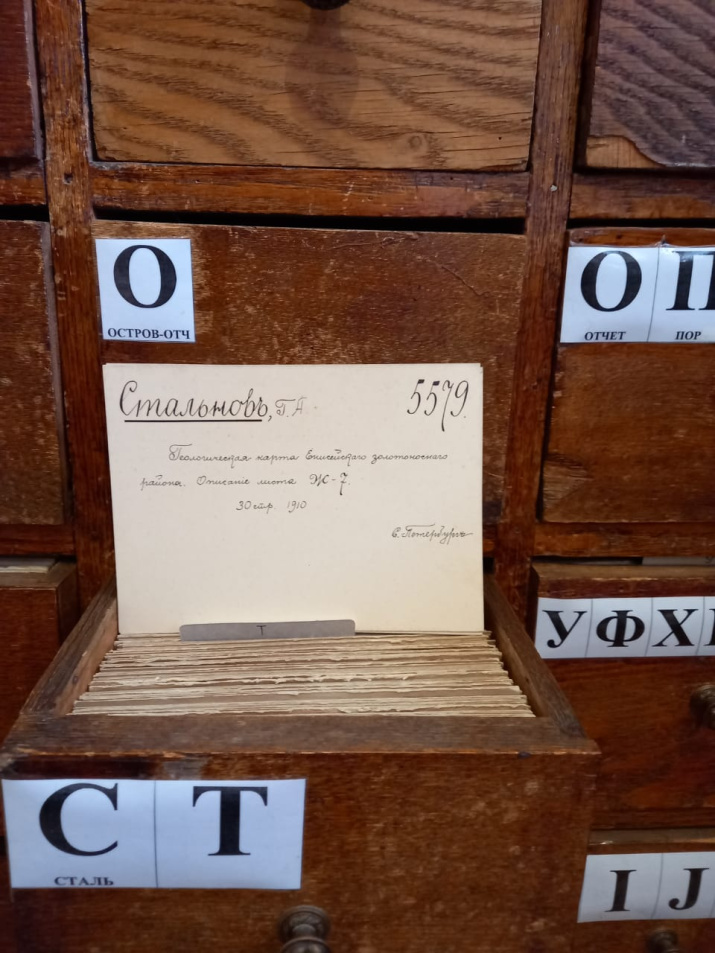 О
ОСТРОВ-ОТЧ
О П
ОТЧЕТ ПОР
Стальновъ, Г. А.
5579.
Геологическая карта Енисейскаго золотоноснаго
района. Описанiе листа Ж-7.
30 стр. 1910
С. Петербургъ
Т
У Ф Х
С Т
СТАЛЬ
I J